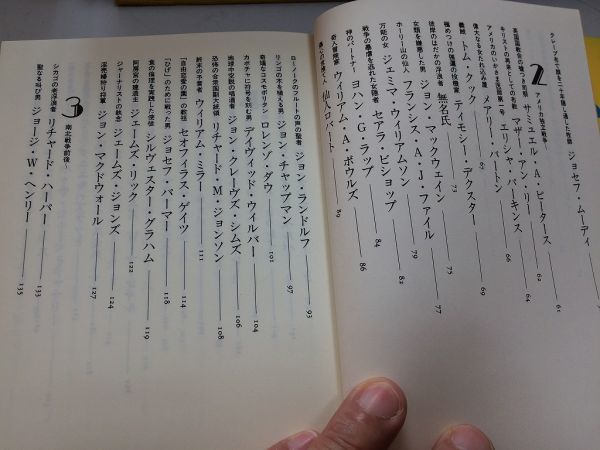 クレープをで顔を二十年隠し通した牧師 ジョセフ・ムーディ
2 アメリカ独立戦争〜
英国国教会の嘘つき司祭 サミュエル・A・ピータース 61
キリストの再来としての布教 マザー・アン・リー 62
アメリカのいかさま医師第一号 エリシャ・パーキンス 64
偉大なるたれ込み屋 メアリー・バートン 67
義賊 トム・クック 69
極めつけの強運の投機家 ティモシー・デクスター 73
彼岸のはだかの浮浪者 無名氏 75
女類を嫌悪した男 ジョン・マックウェイン 77
ホーリー山の仙人 フランシス・A・J・ファイル 79
万能の女 ジェミマ・ウィリアムソン 82
戦争の暴虐を逃れた女隠者 セアラ・ビショップ 84
神のパートナー ヨハン・G・ラップ 86
奇人冒険家 ウィリアム・A・ボウルズ 89
仙人ロバート
ローノークのフルートの声の聖者 ジョン・ランドルフ 93
リンゴの木を植える男 ジョン・チャップマン 97
奇矯なコスモポリタン ロレンゾ・ダウ 101
カボチャに符号を刻む男 デイヴィッド・ウィルバー 104
地球中空説の唱道者 ジョン・クレーヴズ・シムズ 106
恐怖の合衆国副大統領 リチャード・M・ジョンソン 108
終末の予言者 ウィリアム・ミラー 111
「自由恋愛の園」の教祖 セオフィラス・ゲイツ 114
「ひげ」のために戦った男 ジョセフ・パーマー 118
食の倫理を実践した使徒 シルヴェスター・グラハム 119
阿房宮の建造主 ジェームズ・リック 122
ジャーナリストの執念 ジェームズ・ジョンズ 124
淫売婦狩り将軍 ジョン・マクドウォール 127
3 南北戦争前後〜
シカゴの老浮浪者 リチャード・ハーパー 133
聖なる叫び男 ジョージ・W・ヘンリー 135